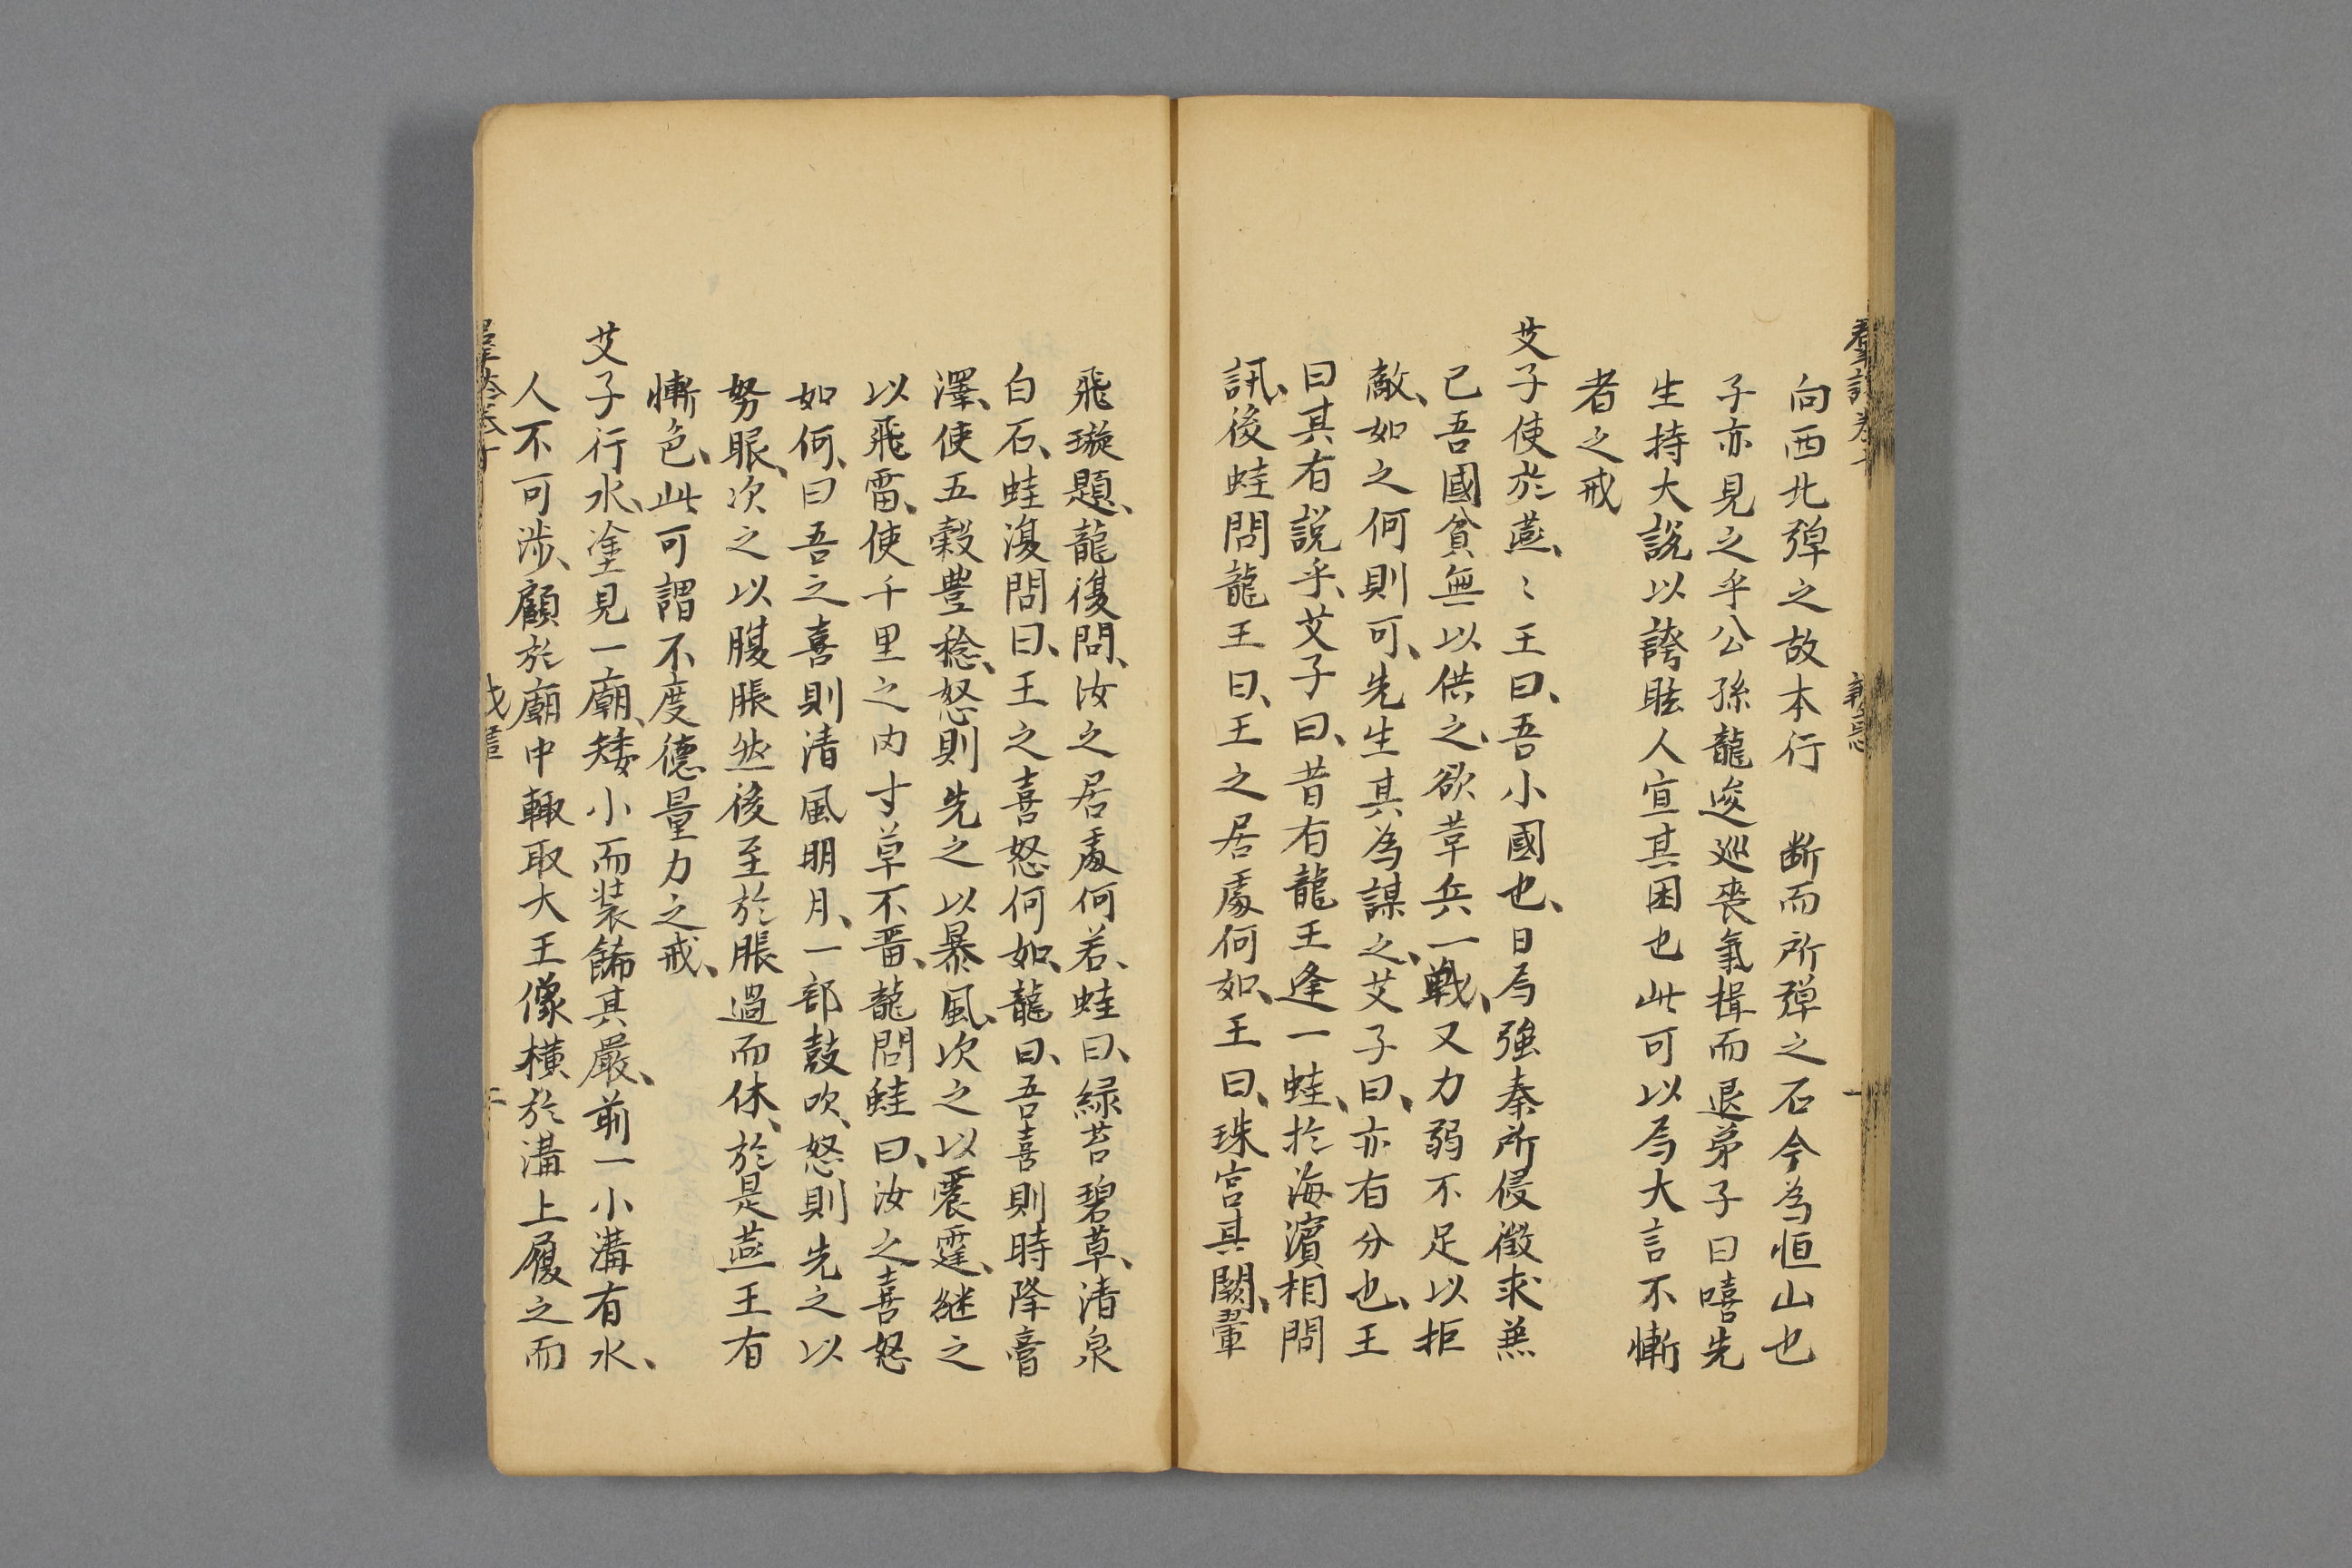 向西北彈之故本行 断而所彈之石今為恒山也
子亦見之乎公孫龍逡巡喪氣揖而退弟子曰嘻先
生持大説以誇眩人宜其困也此可以為大言不慚
者之戒
艾子使於燕、〻王曰、吾小國也、日為強秦所侵徴求無
已吾國貧無以供之、欲革兵一戰、又力弱不足以拒
敵、如之何則可、先生其為謀之、艾子曰、亦有分也、王
曰其有説乎、艾子曰、昔有龍王逢一蛙、於海濵相問
訊、後蛙問龍王曰、王之居處何如、王曰、珠宮其闕、翬
飛璇題、龍復問、汝之居處何若、蛙曰、緑苔碧草、清泉
白石、蛙復問曰、王之喜怒何如、龍曰、吾喜則時降膏
澤、使五穀豊稔、怒則先之以暴風、次之以震霆、継之
以飛雷、使千里之内寸草不畱、龍問蛙曰、汝之喜怒
如何、曰吾之喜則清風明月、一部鼓吹、怒則先之以
努眼、次之以腹脹然後至於脹過而休、於是燕王有
慚色、此可謂不度德量力之戒、
艾子行水、塗見一廟、矮小而装餙其嚴、前一小溝有水、
人不可渉、顧於廟中輙取大王像横於溝上履之而